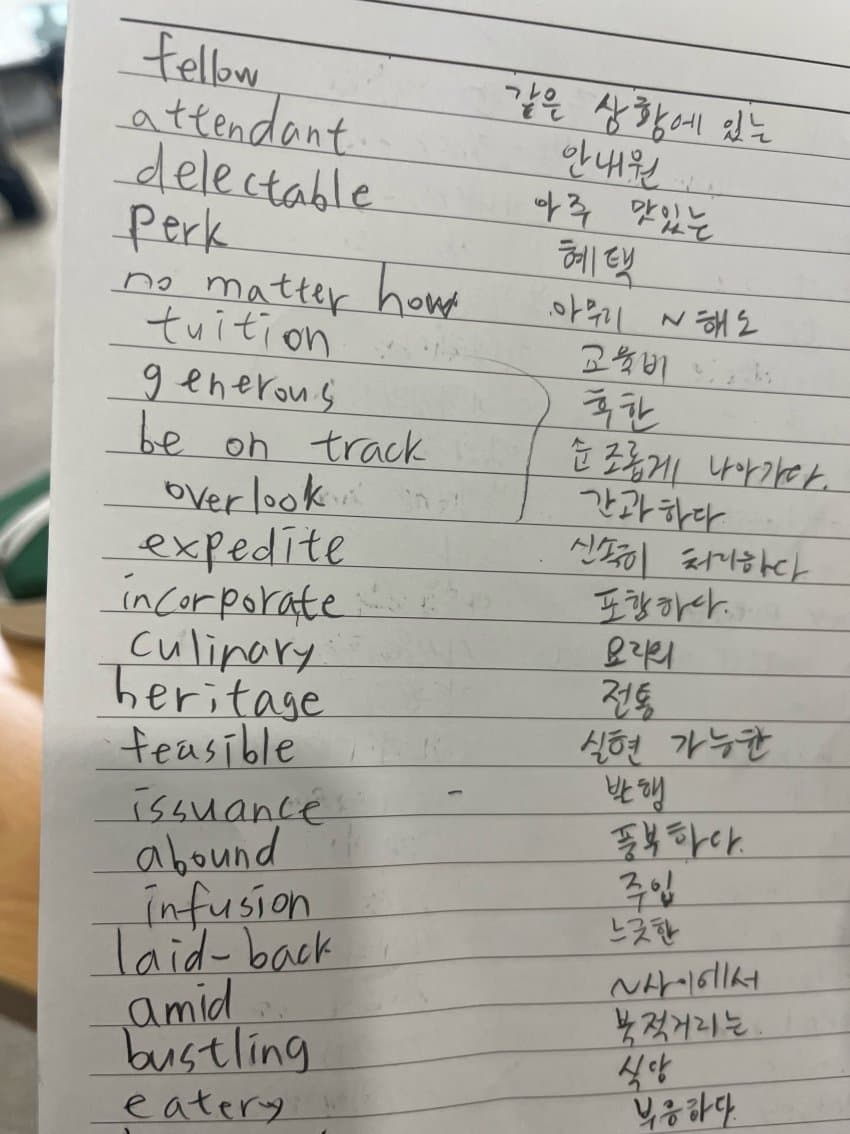 fellow 같은 상황에 있는
attendant 안내원
delectable 아주 맛있는
perk 혜택
no matter how 아무리 ~해도
tuition 교육비
generous 후한
be on track 순조롭게 나아가다.
overlook 간과하다
expedite 신속히 처리하다
incorporate 포함하다.
culinary 요리의
heritage 전통
feasible 실현 가능한
issuance - 발행
abound 풍부하다.
infusion 주입
laid-back 느긋한
amid ~사이에서
bustling 북적거리는
eatery 식당
부응하다